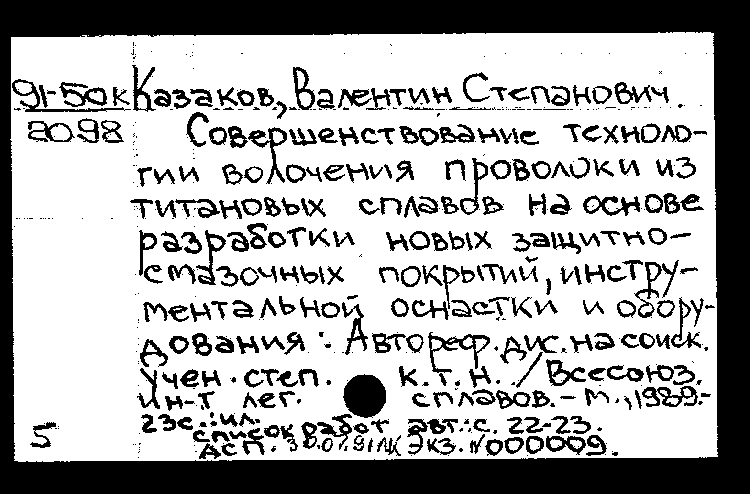 91-50к Казаков, Валентин Степанович.
2098 Совершенствование техноло-
гии волочения проволоки из
титановых сплавов на основе
разработки новых защитно-
смазочных покрытий, инстру-
ментальной оснастки и обору-
дования : Автореф. дис. на соиск.
учен. степ. к.т.н. / Всесоюз.
ин-т лег. сплавов. - М., 1989.-
23с.: ил.
5 список работ авт.: с. 22-23.
Экз. N 000009.